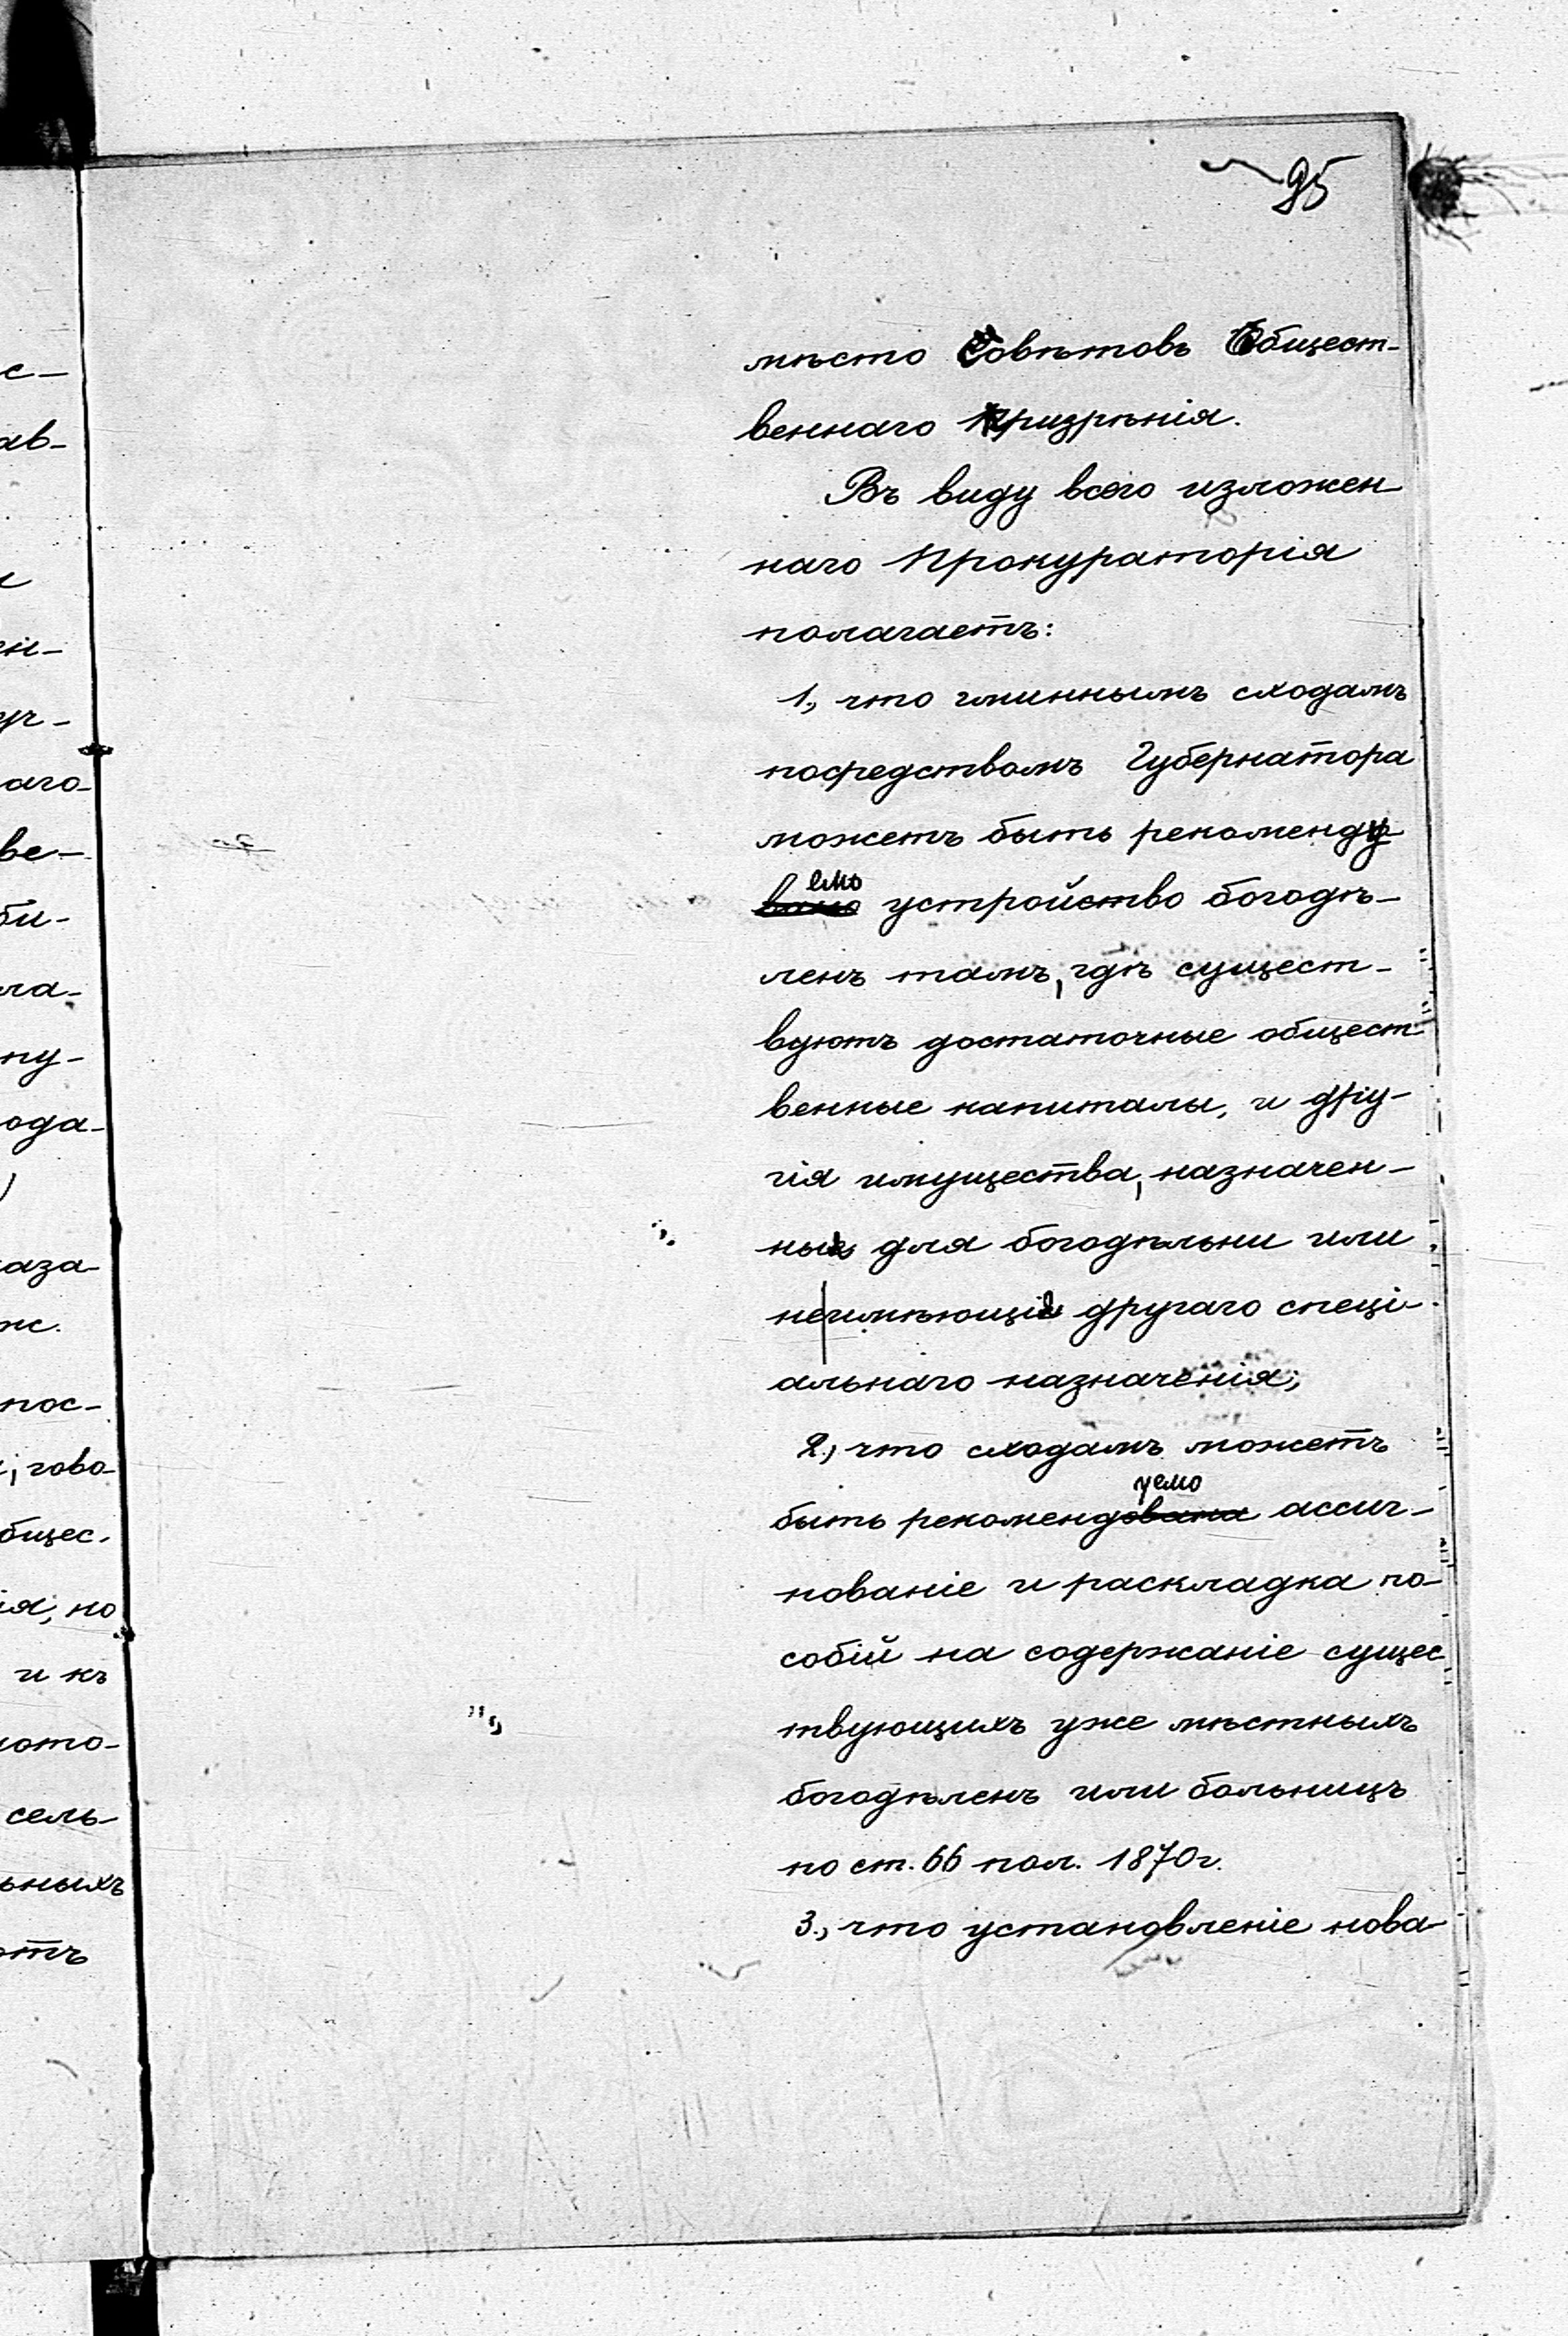 95
мѣсто Совѣтовъ Общест-
веннаго Призрѣнія.
Въ виду всего изложен
наго Прокураторія
полагаетъ:
1., что гминнымъ сходамъ
посредствомъ Губернатора
можетъ быть рекоменду
емо
вано устройство богодѣ-
ленъ тамъ, гдѣ сущест-
вуютъ достаточные общест
венные капиталы, и дру-
гія имущества, назначен-
ныя для богодѣльни или
неимѣющія другаго спеці-
альнаго назначенія;
2., что сходамъ можетъ
уемо
быть рекомендована ассиг-
нованіе и раскладка по-
собій на содержаніе сущес
твующихъ уже мѣстныхъ
богодѣленъ или больницъ
по ст. 66 пол. 1870 г.
3., что установленіе нова-
с-
ав-
аго-
ве-
би-
ла-
пу-
ода-
аза-
пос-
гово-
бщес-
ія, но
и къ
кото-
сель-
ьныхъ
отъ